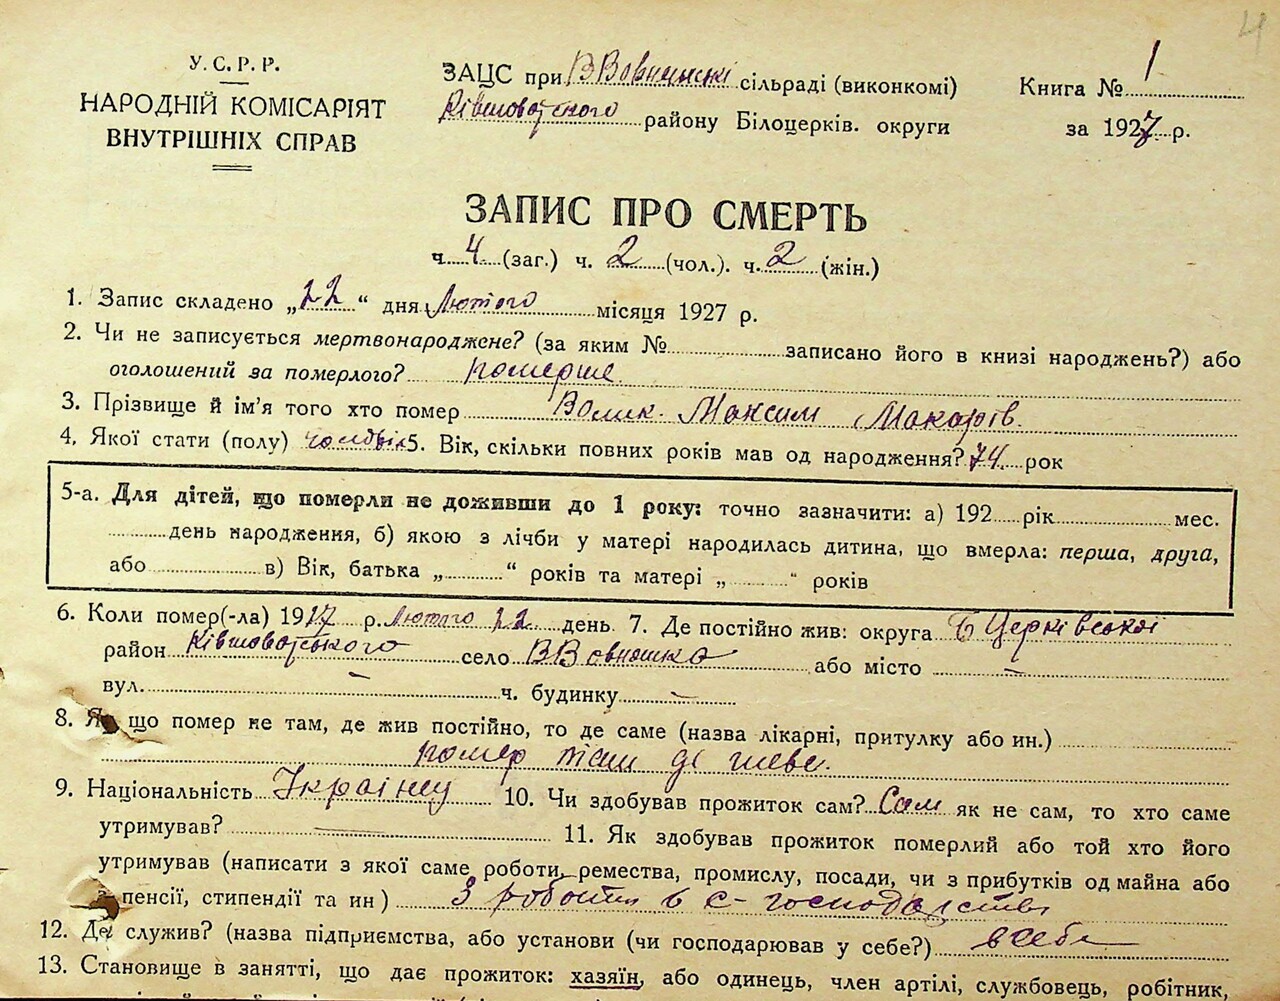 4
У.С.Р.Р.
НАРОДНІЙ КОМІСАРІЯТ
ВНУТРІШНІХ СПРАВ
ЗАЦС при сільраді (виконкомі)
району Білоцерків. округи
Книга № 1
за 1927 р.
ЗАПИС ПРО СМЕРТЬ
ч. 4 (заг.) ч. 2 (чол.). ч. 2 (жін.)
1. Запис складено „22“ дня Лютого місяця 1927 р.
2. Чи не записується мертвонароджене? (за яким № записано його в книзі народжень?) або
оголошений за померлого? померше
3. Прізвище й ім'я того хто помер Волик Максим Макарів.
4. Якої стати (полу) 5. Вік, скільки повних років мав од народження? 74 рок
5-а. Для дітей, що померли не доживши до 1 року: точно зазначити: а) 192 рік мес.
день народження, б) якою з лічби у матері народилась дитина, що вмерла: перша, друга,
або в) Вік, батька „ “ років та матері „ “ років
6. Коли помер(-ла) 1927 р. Лютого 22 день 7. Де постійно жив: округа Б Церківської
район село або місто —
вул. — ч. будинку —
8. Якщо помер не там, де жив постійно, то де саме (назва лікарні, притулку або ин.)
помер там де
9. Національність 10. Чи здобував прожиток сам? Сам як не сам, то хто саме
утримував? — 11. Як здобував прожиток померлий або той хто його
утримував (написати з якої саме роботи, ремества, промислу, посади, чи з прибутків од майна або
з пенсії, стипендії та ин) З роботи в с-господарстві
12. Де служив? (назва підприємства, або установи (чи господарював у себе?) в себе
13. Становище в занятті, що дає прожиток: хазяїн, або одинець, член артілі, службовець, робітник,